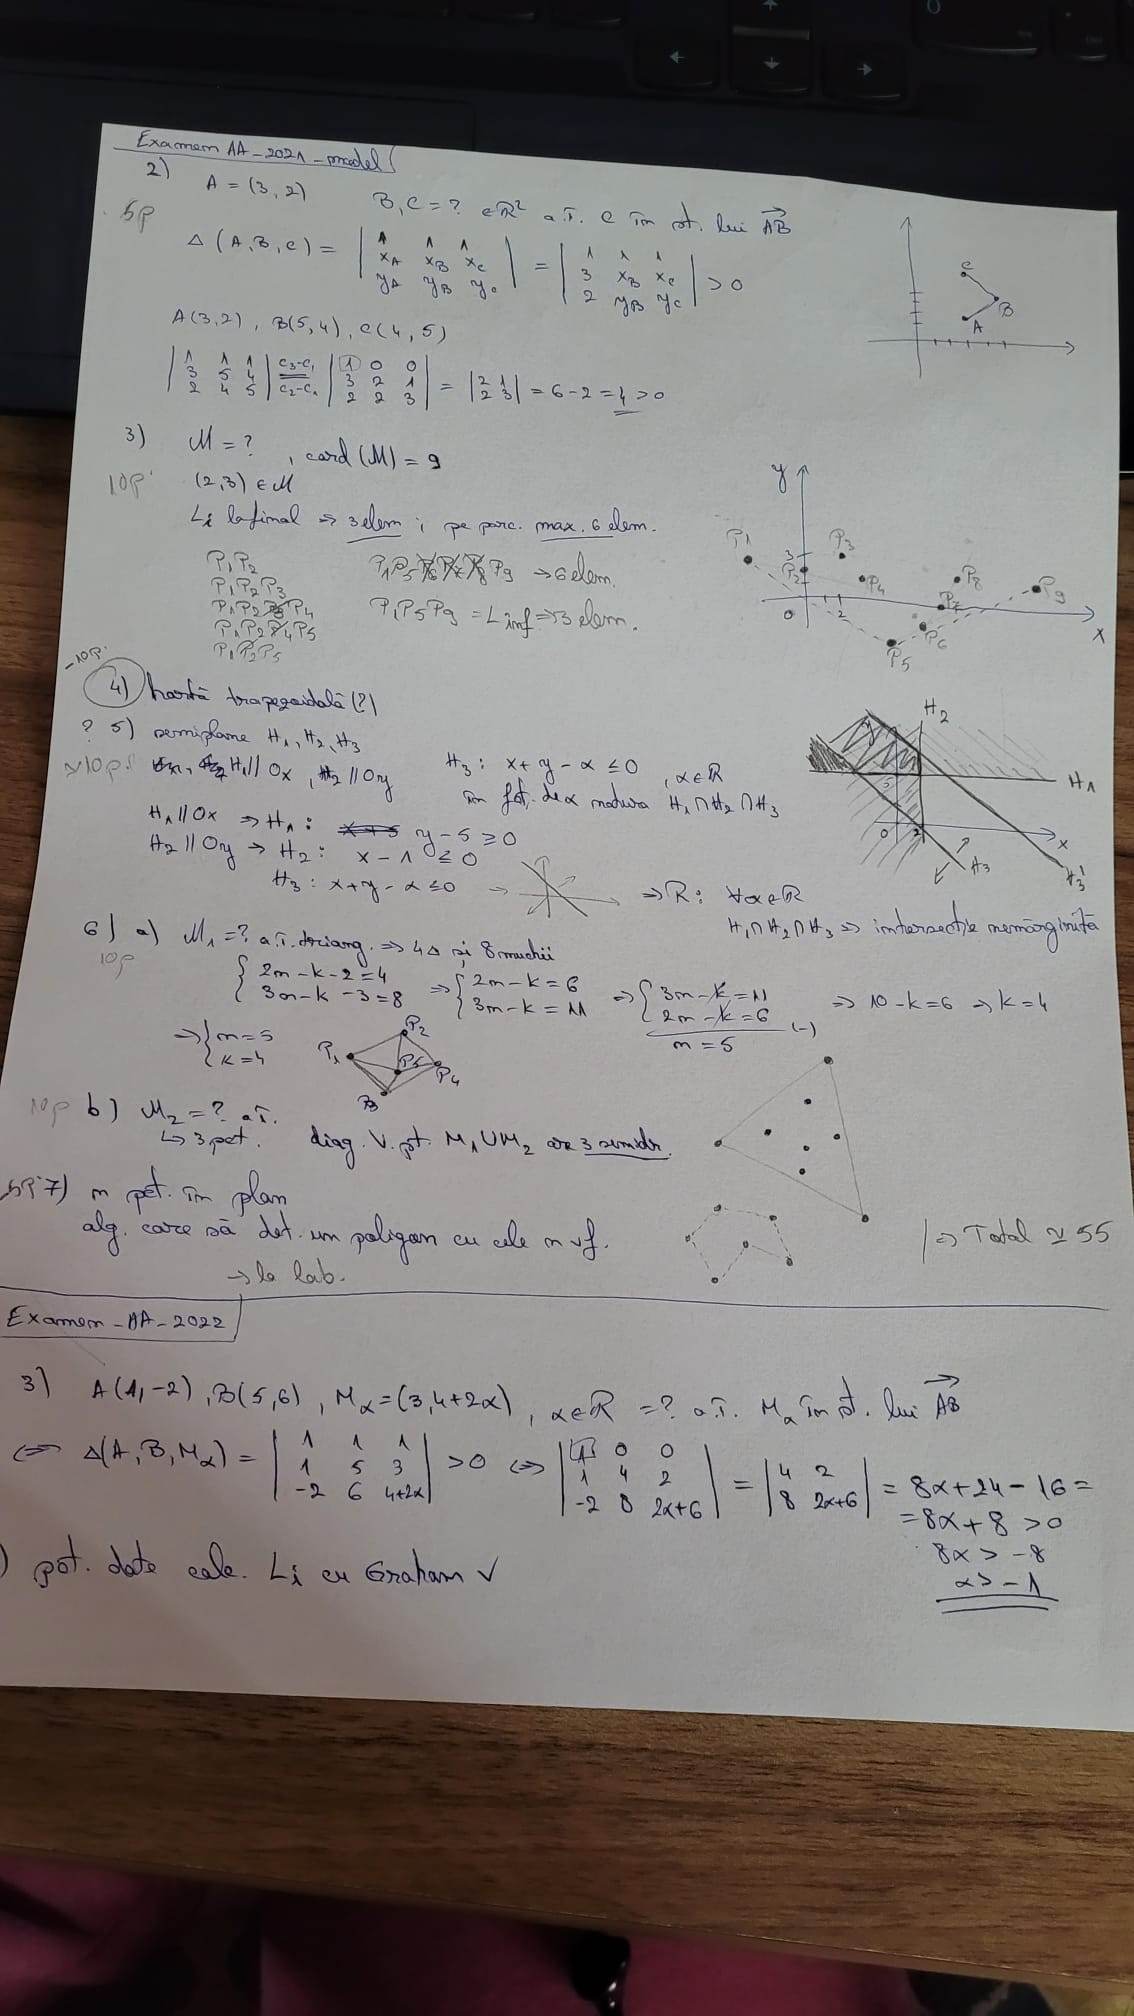 Examen AA-2021-model
2) A = (3,2) B,C = ? ∈ ℝ² a.î. C în st. lui AB
5p
Δ(A,B,C) = | 1 1 1 | = | 1 1 1 | > 0
xA xB xC 3 xB xC
yA yB yC 2 yB yC
C
B
A
A(3,2), B(5,4), C(4,5)
| 1 1 1 | C3-C1 | 1 0 0 | = | 2 1 | = 6-2 = 4 > 0
3 5 4 3 2 1 2 3
2 4 5 C2-C1 2 2 3
3) M = ? , card(M) = 9
10p
(2,3) ∈ M
Li la final ⇒ 3 elem ; pe parc. max. 6 elem.
P1P2
P1P2P3
P1P2P3P4
P1P2P4P5
P1P2P5
P1P5P6P7P8P9 → 6 elem.
P1P5P9 = Linf ⇒ 3 elem.
y
P1
P2
3
P3
P4
P8
P7
P9
0
2
P6
P5
x
-10p.
4) hartă trapezoidală (?)
? 5) semiplane H1, H2, H3
~10p. H1 // Ox , H2 // Oy
H3 : x+y-α ≤ 0 , α∈ℝ
în fct. de α natura H1∩H2∩H3
H1 // Ox ⇒ H1 : y-5 ≥ 0
H2 // Oy → H2 : x-1 ≤ 0
H3 : x+y-α ≤ 0 → ⇒ R: ∀α∈ℝ
H1∩H2∩H3 ⇒ intersecție nemărginită
H2
H1
5
0
x
H3
H3'
6) a) M1 = ? a.î. triang. ⇒ 4Δ și 8 muchii
10p
{ 2m-k-2=4 ⇒ { 2m-k=6 ⇒ { 3m-k=11 ⇒ 10-k=6 ⇒ k=4
3m-k-3=8 3m-k=11 2m-k=6 (-)
m=5
⇒ { m=5
k=4
P1
P2
P5
P4
P3
10p b) M2 = ? a.î.
↳ 3 pct. diag. V. pt. M1∪M2 are 3 semidr.
5p 7) n pct. în plan
alg. care să det. un poligon cu cele n vf.
→ la lab.
⇒ Total ≃ 55
Examen-AA-2022
3) A(1,-2), B(5,6), Mα=(3,4+2α), α∈ℝ = ? a.î. Mα în st. lui AB
⇔ Δ(A,B,Mα) = | 1 1 1 | > 0 ⇔ | 1 0 0 | = | 4 2 | = 8α+24-16 =
1 5 3 1 4 2 8 2α+6
-2 6 4+2α -2 8 2α+6
= 8α+8 > 0
8α > -8
α > -1
) pct. date calc. Li cu Graham √